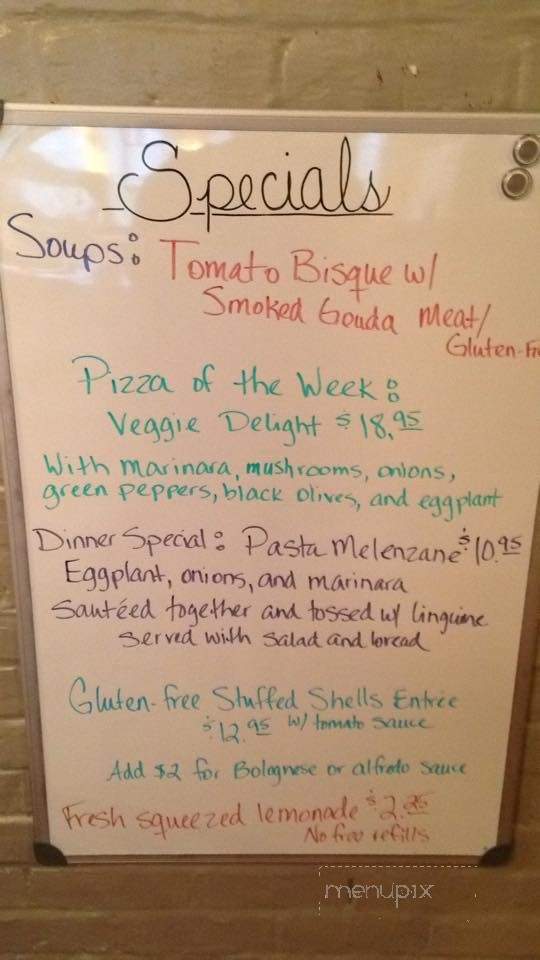 Specials
Soups: Tomato Bisque w/
Smoked Gouda Meat/
Gluten-Fr
Pizza of the Week:
Veggie Delight $18.95
With marinara, mushrooms, onions,
green peppers, black olives, and eggplant
Dinner Special: Pasta Melenzane $10.95
Eggplant, onions, and marinara
sautéed together and tossed w/ linguine
served with salad and bread
Gluten-free Stuffed Shells Entrée
$12.95 w/ tomato sauce
Add $2 for Bolognese or alfredo sauce
Fresh squeezed lemonade $2.25
No free refills
menupix